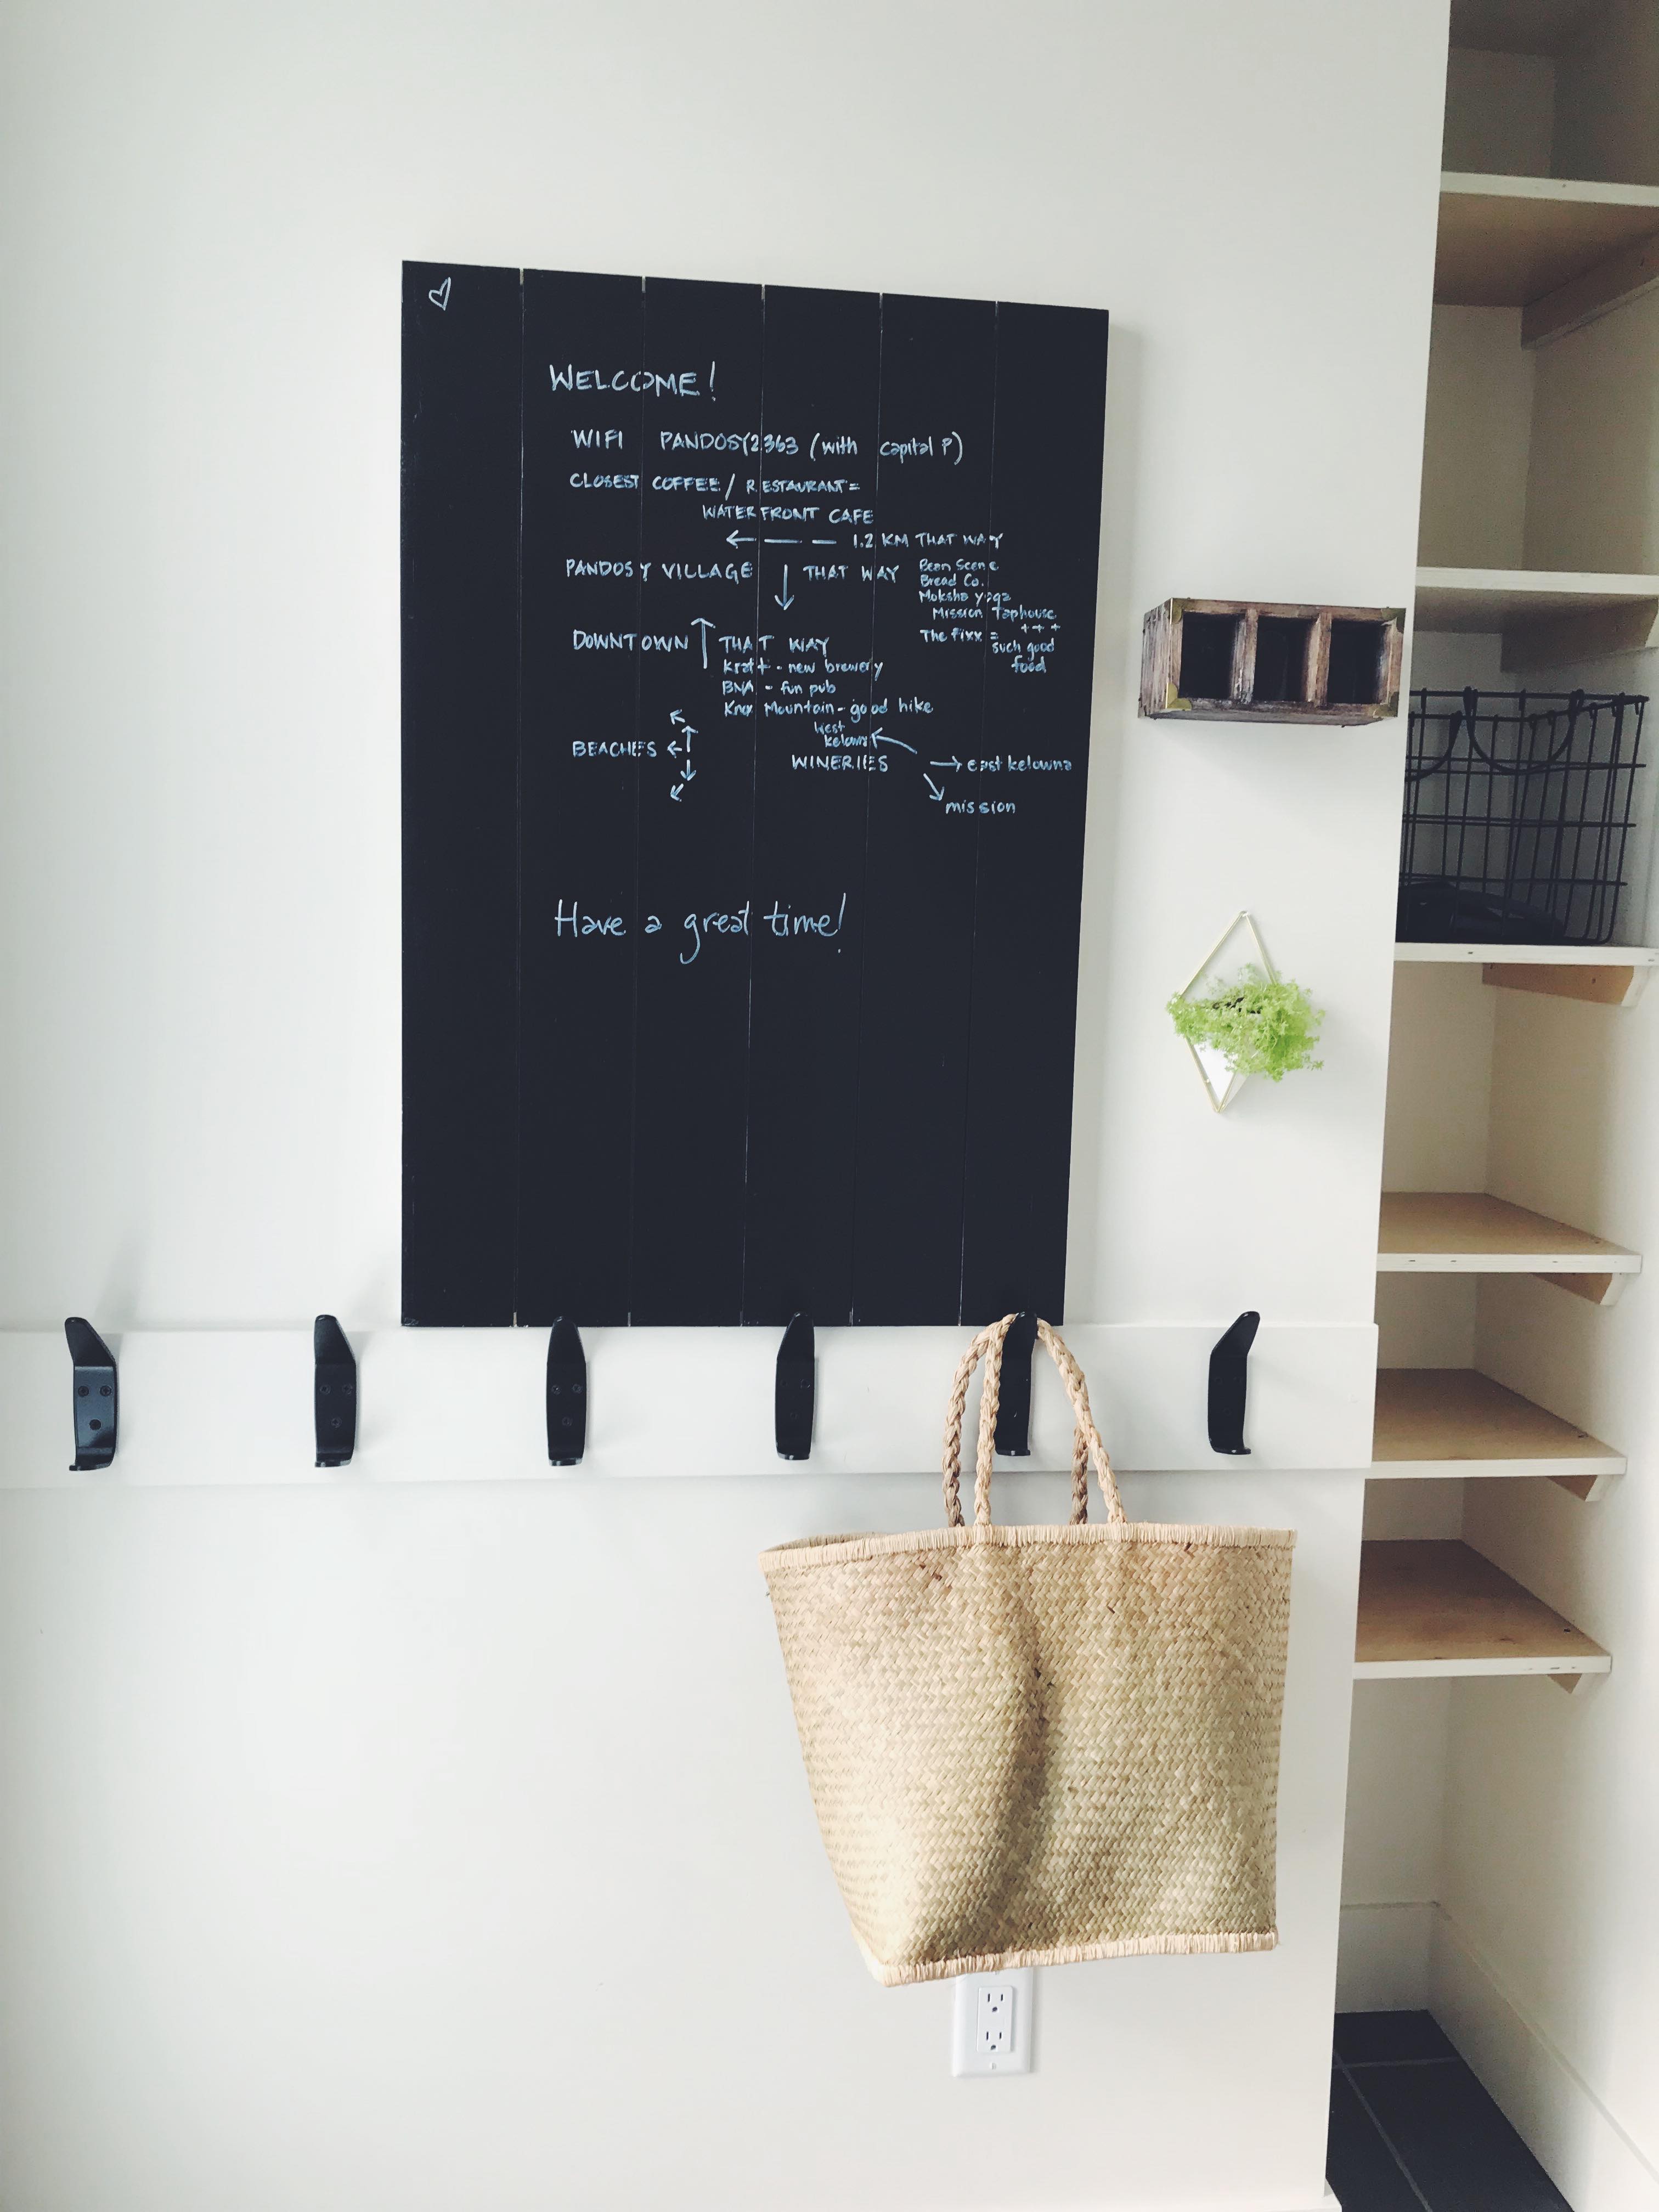 WELCOME!
WIFI PANDOSY2363 (with capital P)
CLOSEST COFFEE / RESTAURANT =
WATERFRONT CAFE
← — — 1.2 KM THAT WAY
PANDOSY VILLAGE ↓ THAT WAY
Bean Scene
Bread Co.
Moksha yoga
Mission Taphouse
+ + +
The Fixx = such good
food
DOWNTOWN ↑ THAT WAY
Kraft - new brewery
BNA - fun pub
Knox Mountain - good hike
BEACHES
west
kelowna
WINERIES → east kelowna
mission
Have a great time!